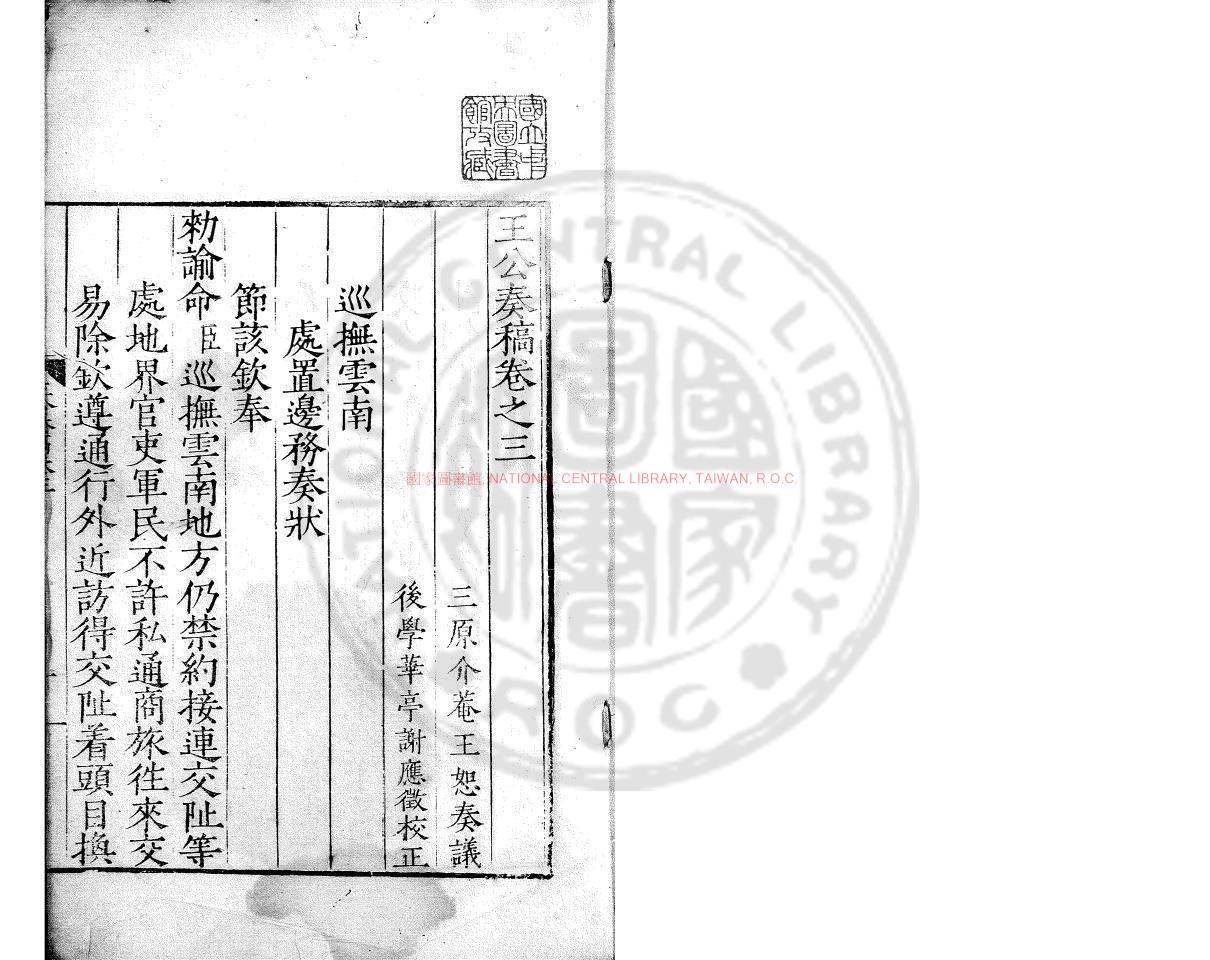 王公奏稿卷之三
三原介菴王恕奏議
後學華亭謝應徵校正
巡撫雲南
處置邊務奏狀
節該欽奉
勑諭命臣巡撫雲南地方仍禁約接連交阯等
處地界官吏軍民不許私通商旅徃來交
易除欽遵通行外近訪得交阯着頭目換
國立中央圖書館收藏
國家圖書館, NATIONAL CENTRAL LIBRARY, TAIWAN, R.O.C.
NATIONAL CENTRAL LIBRARY
ROC
國家圖書